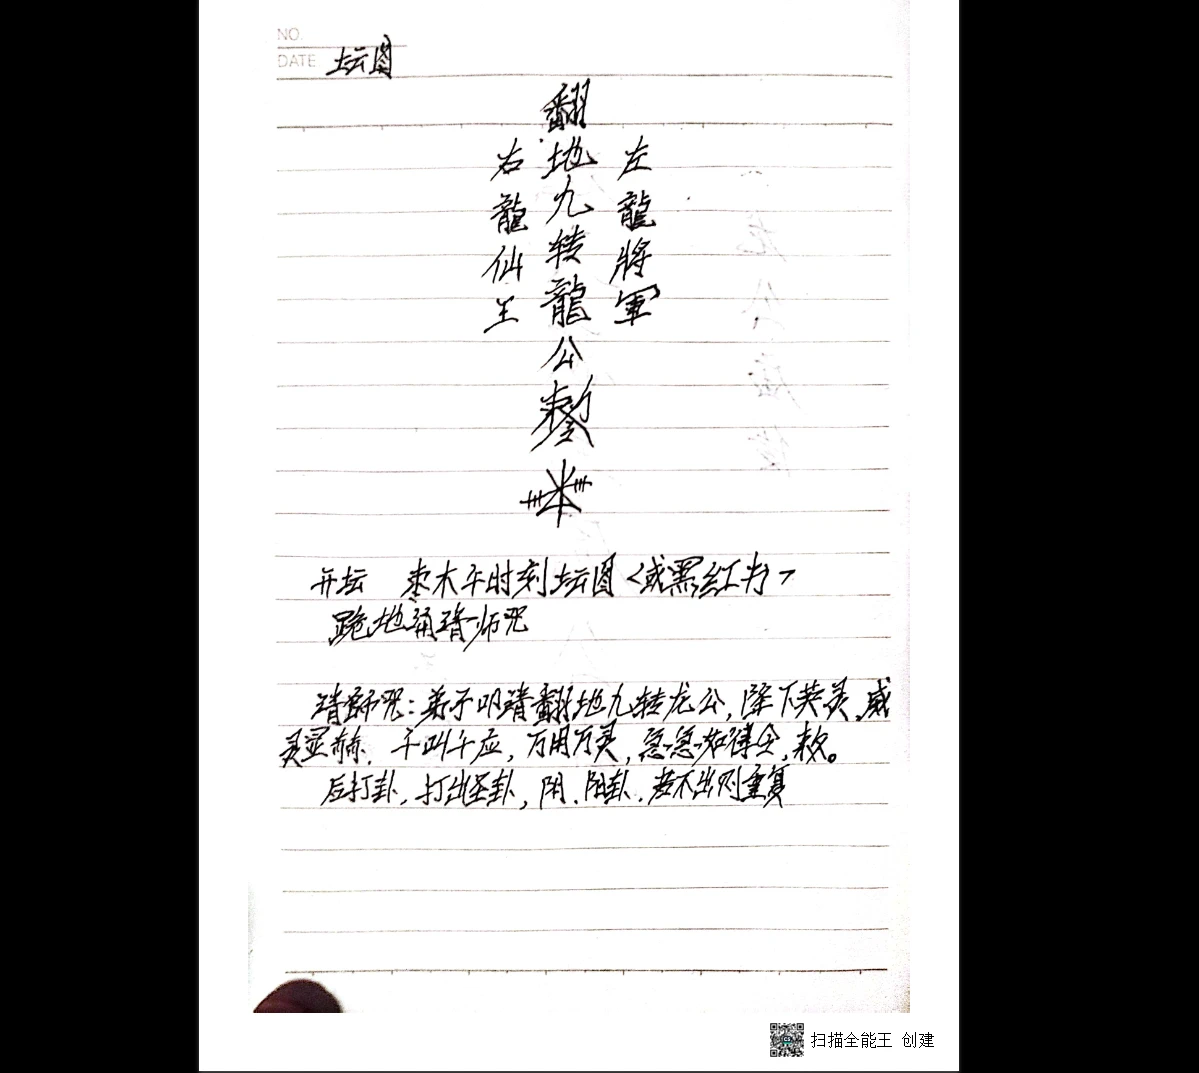 NO.
DATE 坛图
翻地九转龍公
左龍將軍
右龍仙王
开坛 枣木午时刻坛图<或黑红书>
跪地诵请师咒
请师咒：弟子叩请翻地九转龙公，降下英灵，威
灵显赫，千叫千应，万用万灵，急急如律令，敕。
后打卦，打出圣卦，阴、阳卦，若不出则重复
扫描全能王 创建